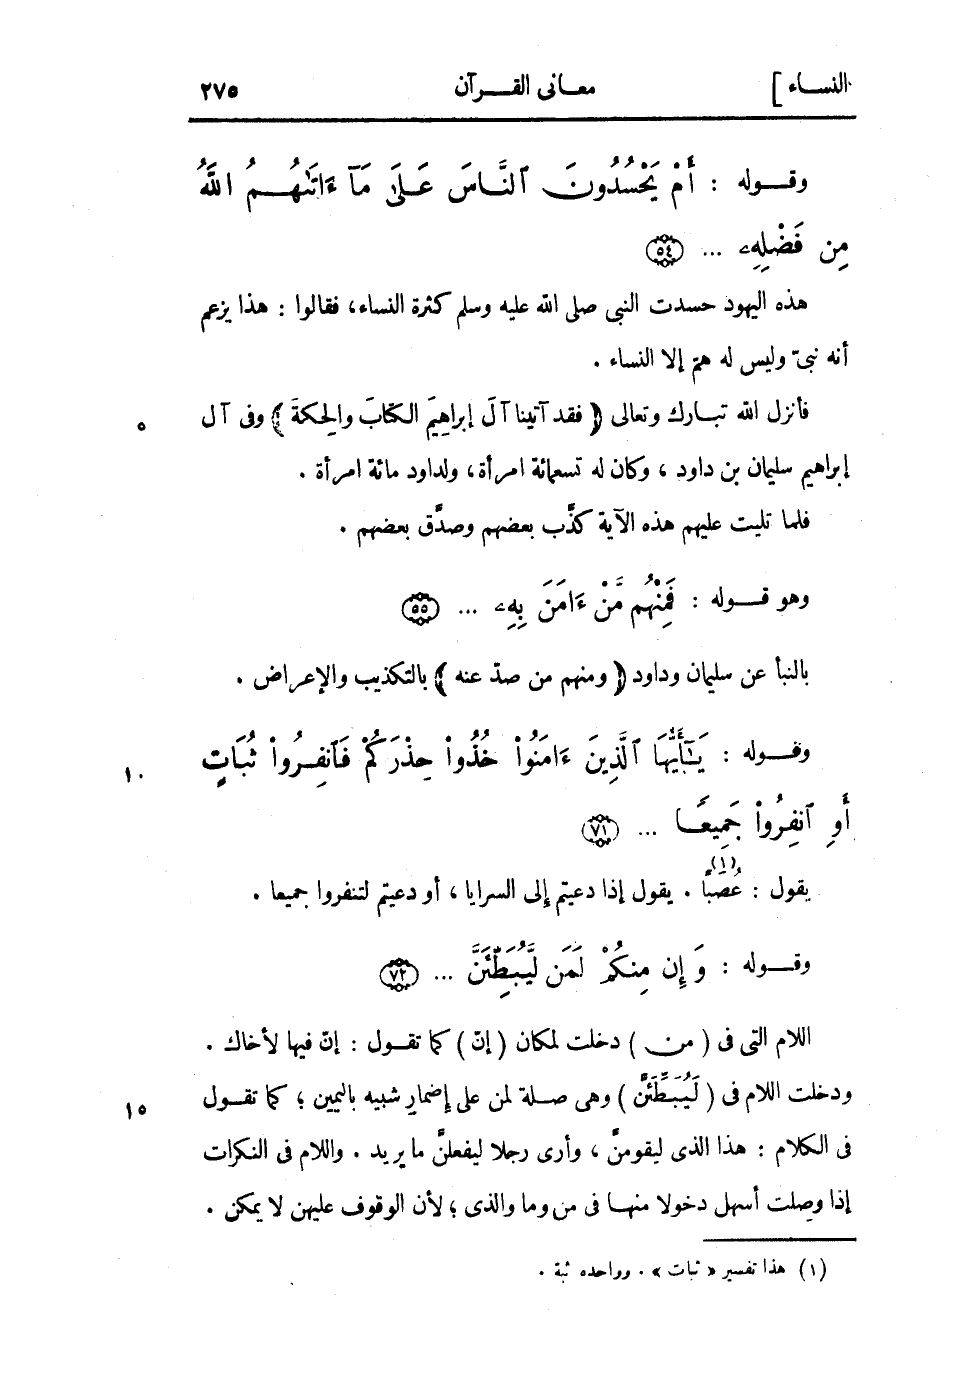 النساء ] معانى القرآن ٢٧٥
وقوله : أَمْ يَحْسُدُونَ ٱلنَّاسَ عَلَىٰ مَآ ءَاتَىٰهُمُ اللَّهُ
مِن فَضْلِهِۦ ... ٥٤
هذه اليهود حسدت النبى صلى الله عليه وسلم كثرة النساء، فقالوا : هذا يزعم
أنه نبىّ وليس له همّ إلا النساء .
فأنزل الله تبارك وتعالى ﴿ فقد آتينا آلَ إبراهِيمَ الكتابَ والحِكمةَ ﴾ وفى آل ٥
إبراهيم سليمان بن داود ، وكان له تسعمائة امرأة، ولداود مائة امرأة .
فلما تليت عليهم هذه الآية كذَّب بعضهم وصدَّق بعضهم .
وهو قوله : فَمِنْهُم مَّنْ ءَامَنَ بِهِۦ ... ٥٥
بالنبأ عن سليمان وداود ﴿ ومنهم من صدّ عنه ﴾ بالتكذيب والإعراض .
وقوله : يَـٰٓأَيُّهَا ٱلَّذِينَ ءَامَنُواْ خُذُواْ حِذْرَكُمْ فَٱنفِرُواْ ثُبَاتٍ ١٠
أَوِ ٱنفِرُواْ جَمِيعًا ... ٧١
يقول : عُصَبًا (١) . يقول إذا دعيتم إلى السرايا ، أو دعيتم لتنفروا جميعا .
وقوله : وَ إِن مِنكُمْ لَمَن لَّيُبَطِّئَنَّ ... ٧٢
اللام التى فى ( من ) دخلت لمكان ( إنّ ) كما تقول : إنّ فيها لأخاك .
ودخلت اللام فى ( لَيُبَطِّئَنَّ ) وهى صلة لمن على إضمارٍ شبيه باليمين ؛ كما تقول ١٥
فى الكلام : هذا الذى ليقومنَّ ، وأرى رجلا ليفعلنَّ ما يريد . واللام فى النكرات
إذا وصِلت أسهل دخولا منها فى من وما والذى ؛ لأن الوقوف عليهن لا يمكن .
(١) هذا تفسير « ثبات » . وواحده ثبة .